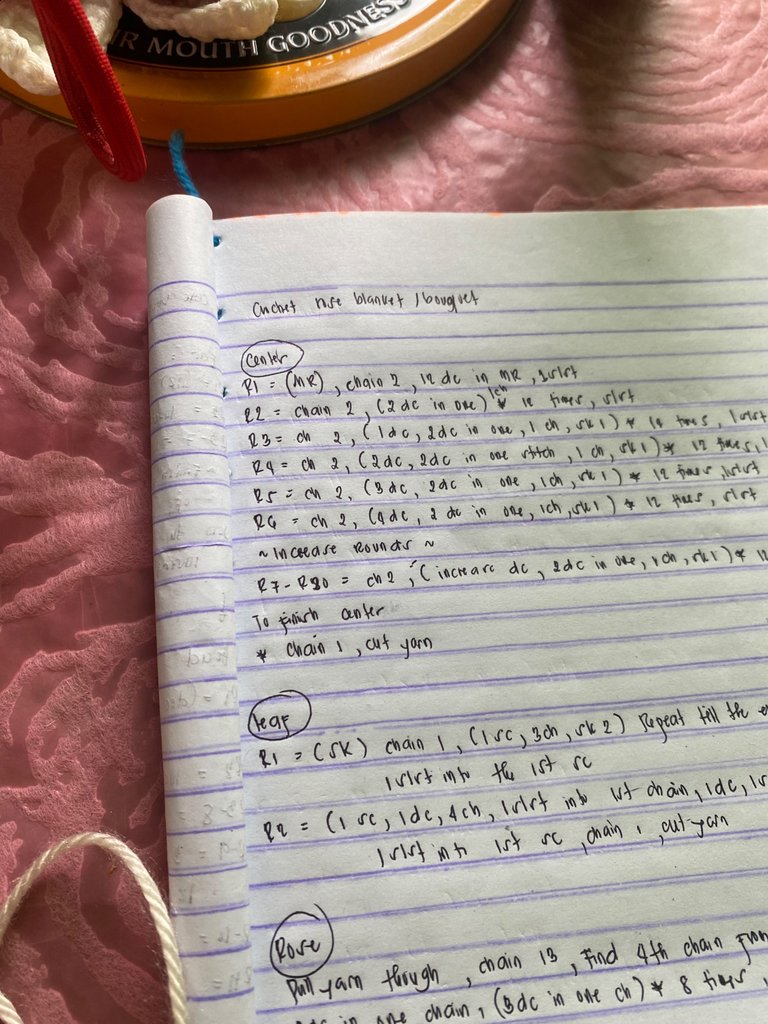 R MOUTH GOODNESS
Crochet rose blanket / bouquet
Center
R1 = (MR), chain 2, 12 dc in MR, 1slst
R2 = chain 2, (2 dc in one) 1ch * 12 times, slst
R3 = ch 2, (1dc, 2dc in one, 1 ch, sk1) * 12 times, 1slst
R4 = ch 2, (2dc, 2dc in one stitch, 1 ch, sk1) * 12 times, 1
R5 = ch 2, (3dc, 2dc in one, 1ch, sk1) * 12 times, 1slst
R6 = ch 2, (4dc, 2 dc in one, 1ch, sk1) * 12 times, slst
~ Increase Rounds ~
R7 - R20 = ch2, (increase dc, 2dc in one, 1 ch, sk1) * 12
To finish center
* chain 1, cut yarn
Leaf
R1 = (SK) chain 1, (1 sc, 3ch, sk 2) Repeat till the
1slst into the 1st sc
R2 = (1 sc, 1dc, 4ch, 1slst into 1st chain, 1dc, 1s
1slst into 1st sc, chain 1, cut yarn
Rose
Pull yarn through, chain 13, Find 4th chain from
2dc in one chain, (3dc in one ch) * 8 times,